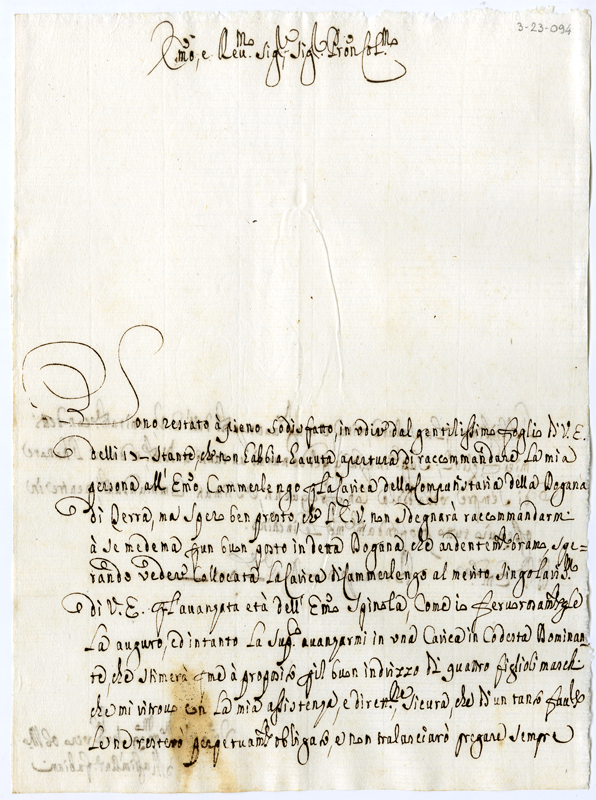 3-23-094
Emo, e Reu.mo Sig.r, Sig.r Pron Col.mo
Sono restato à pieno sodisfatto, in udir dal gentilissimo foglio di V.E.
delli 10 stante, che non habbia hauuta apertura di raccommandare La mia
persona all' Emo Cammerlengo p La Carica della Computistaria della Dogana
di Terra, ma spero ben presto, che l'E.V. non sdegnarà raccommandarmi
à se medema p un buon posto in detta Dogana, che ardentem.te bramo, spe=
rando vedere Collocata La Carica di Cammerlengo al merito Singolariss.mo
di V.E. p l'auanzata età dell' Emo Spinola, Come io feruorosam.te gle
La auguro, ed intanto La sup.co auanzarmi in una Carica in Codesta Dominan
te, che stimerà p me à proposito p il buon indrizzo di quattro figlioli maschi
che mi ritrouo con La mia assistenza, e dirett.ne sicura, che di un tanto fauore
Le ne resterò perpetuam.te obligato, e non tralanciarò pregare sempre